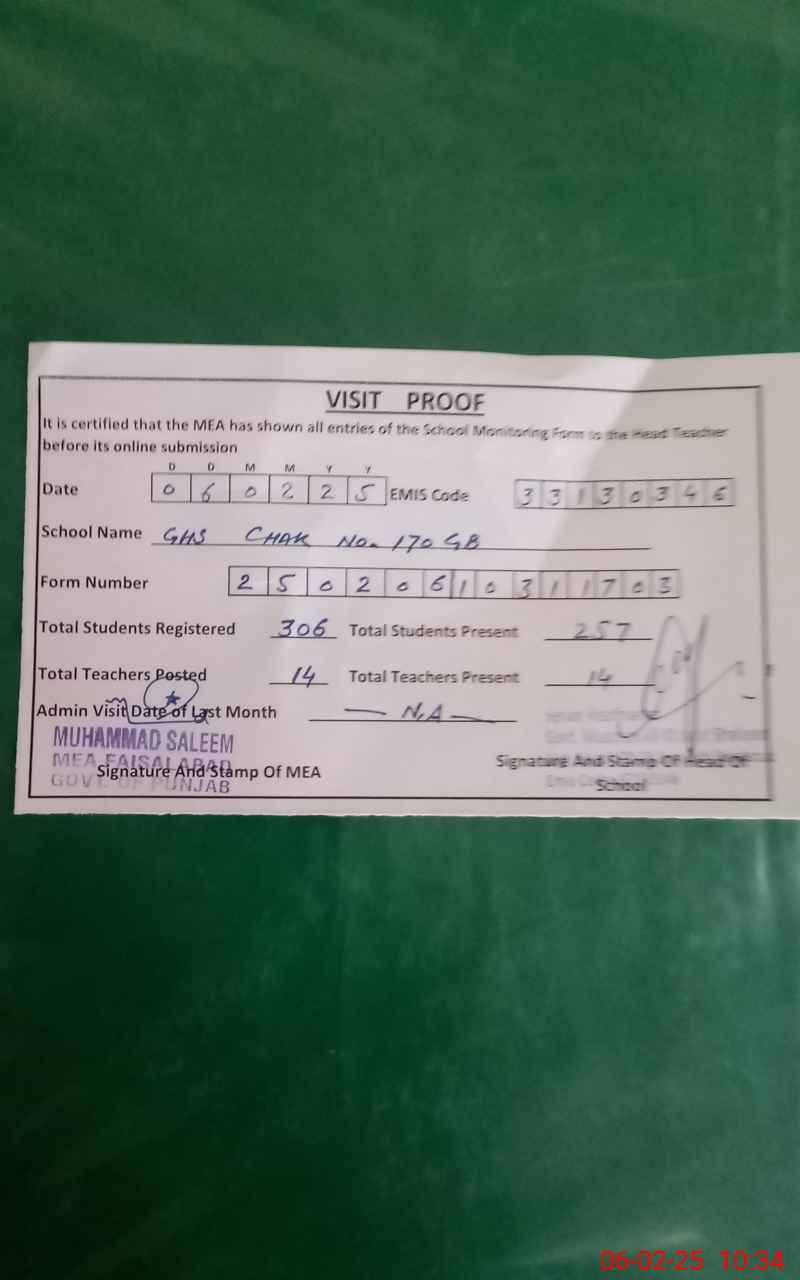 VISIT PROOF
It is certified that the MEA has shown all entries of the School Monitoring Form to the Head Teacher
before its online submission
D D M M Y Y
Date 0 6 0 2 2 5 EMIS Code 3 3 1 3 0 3 4 6
School Name GHS CHAK No. 170 GB
Form Number 2 5 0 2 0 6 1 0 3 1 1 7 0 3
Total Students Registered 306 Total Students Present 257
Total Teachers Posted 14 Total Teachers Present 14
Admin Visit Date of Last Month — N.A —
MUHAMMAD SALEEM
MEA FAISALABAD
GOVT. OF PUNJAB
Signature And Stamp Of MEA
Signature And Stamp Of Head Of
School
06-02-25 10:34